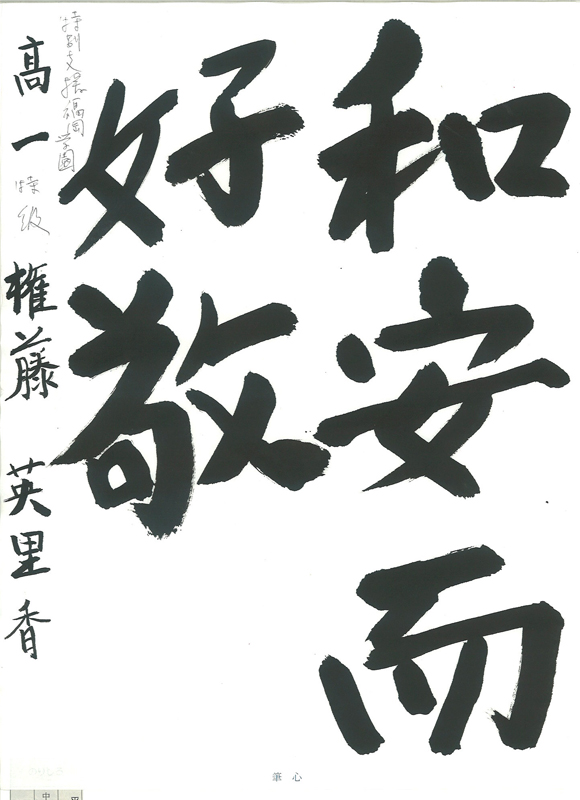 和安而
好敬
特別支援福岡学園
高一 特級 権藤 英里香
筆心
中